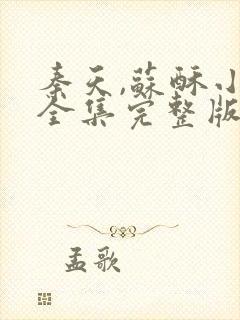 秦天,蘇酥小
全集完整版
孟歌